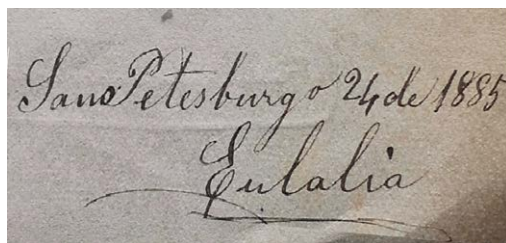 Sans Petesburgo 24 de 1885
Eulalia